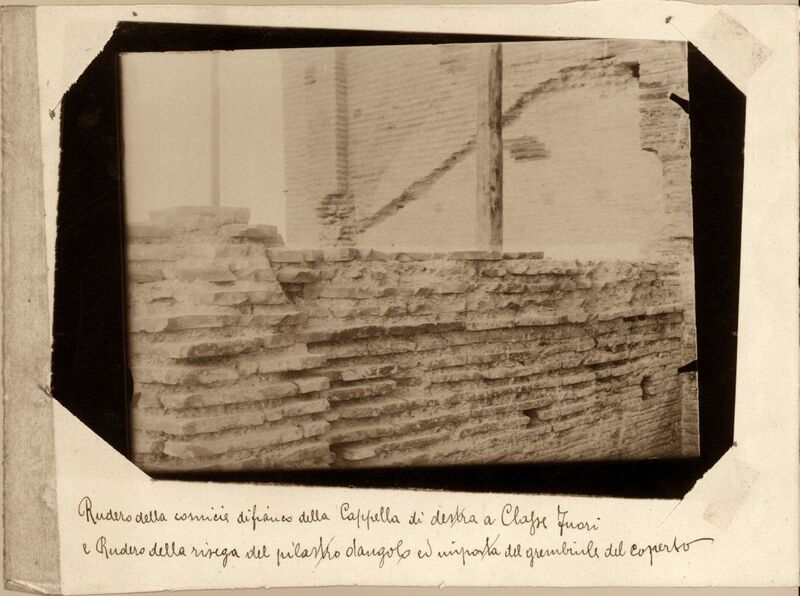 Rudero della cornicie di fianco della Cappella di destra a Classe Fuori
e Rudero della risega del pilastro d'angolo ed imposta del grembiule del coperto